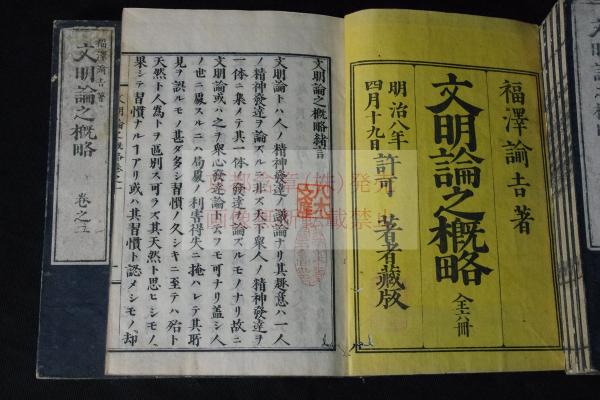 福澤諭吉著
文明論之概略
全六冊
明治八年
四月十九日許可
著者藏版
文明論之概略緒言
文明論トハ人ノ精神發達ノ議論ナリ其趣意ハ一人
ノ精神發達ヲ論ズルニ非ズ天下衆人ノ精神發達ヲ
一体ニ集メテ其一体ノ發達ヲ論ズルモノナリ故ニ
文明論或ハ之ヲ衆心發達論ト云フモ可ナリ蓋シ人
ノ世ニ處スルニハ局處ノ利害得失ニ掩ハレテ其所
見ヲ誤ルモノ甚タ多シ習慣ノ久シキニ至テハ殆ト
天然ト人為トヲ區別ス可ラズ其天然ト思ヒシモノ
果シテ習慣ナルヿアリ或ハ其習慣ト認メシモノ却
文明論之概略卷之一
福澤諭吉著
文明論之概略
卷之五